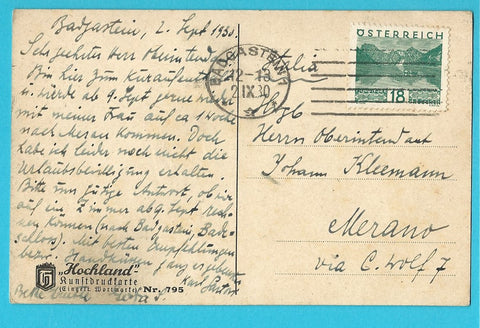 Badgastein, 2. Sept 1930.
Sehr geehrter Herr Oberintendant
Bin hier zum Kuraufenthalt
u. werde ab 9. Sept gerne
mit meiner Frau auf ca 1 Woche
nach Meran kommen. Doch
habe ich leider noch nicht die
Urlaubsbewilligung erhalten.
Bitte um gütige Antwort, ob wir
auf ein Zimmer ab 9. Sept
können (nach Badgastein, Bade-
schloss). Mit besten Empfehlungen
bezw. Handküssen ganz ergebenst
Karl
Bitte
"Hochland"
Kunstdruckkarte
(Eingetr. Wortmarke) Nr. 795
BADGASTEIN 1
12-13
2 IX 30
ÖSTERREICH
18
GROSCHEN
Italia
Herrn Oberintendant
Johann Kleemann
Merano
via C. Wolf 7